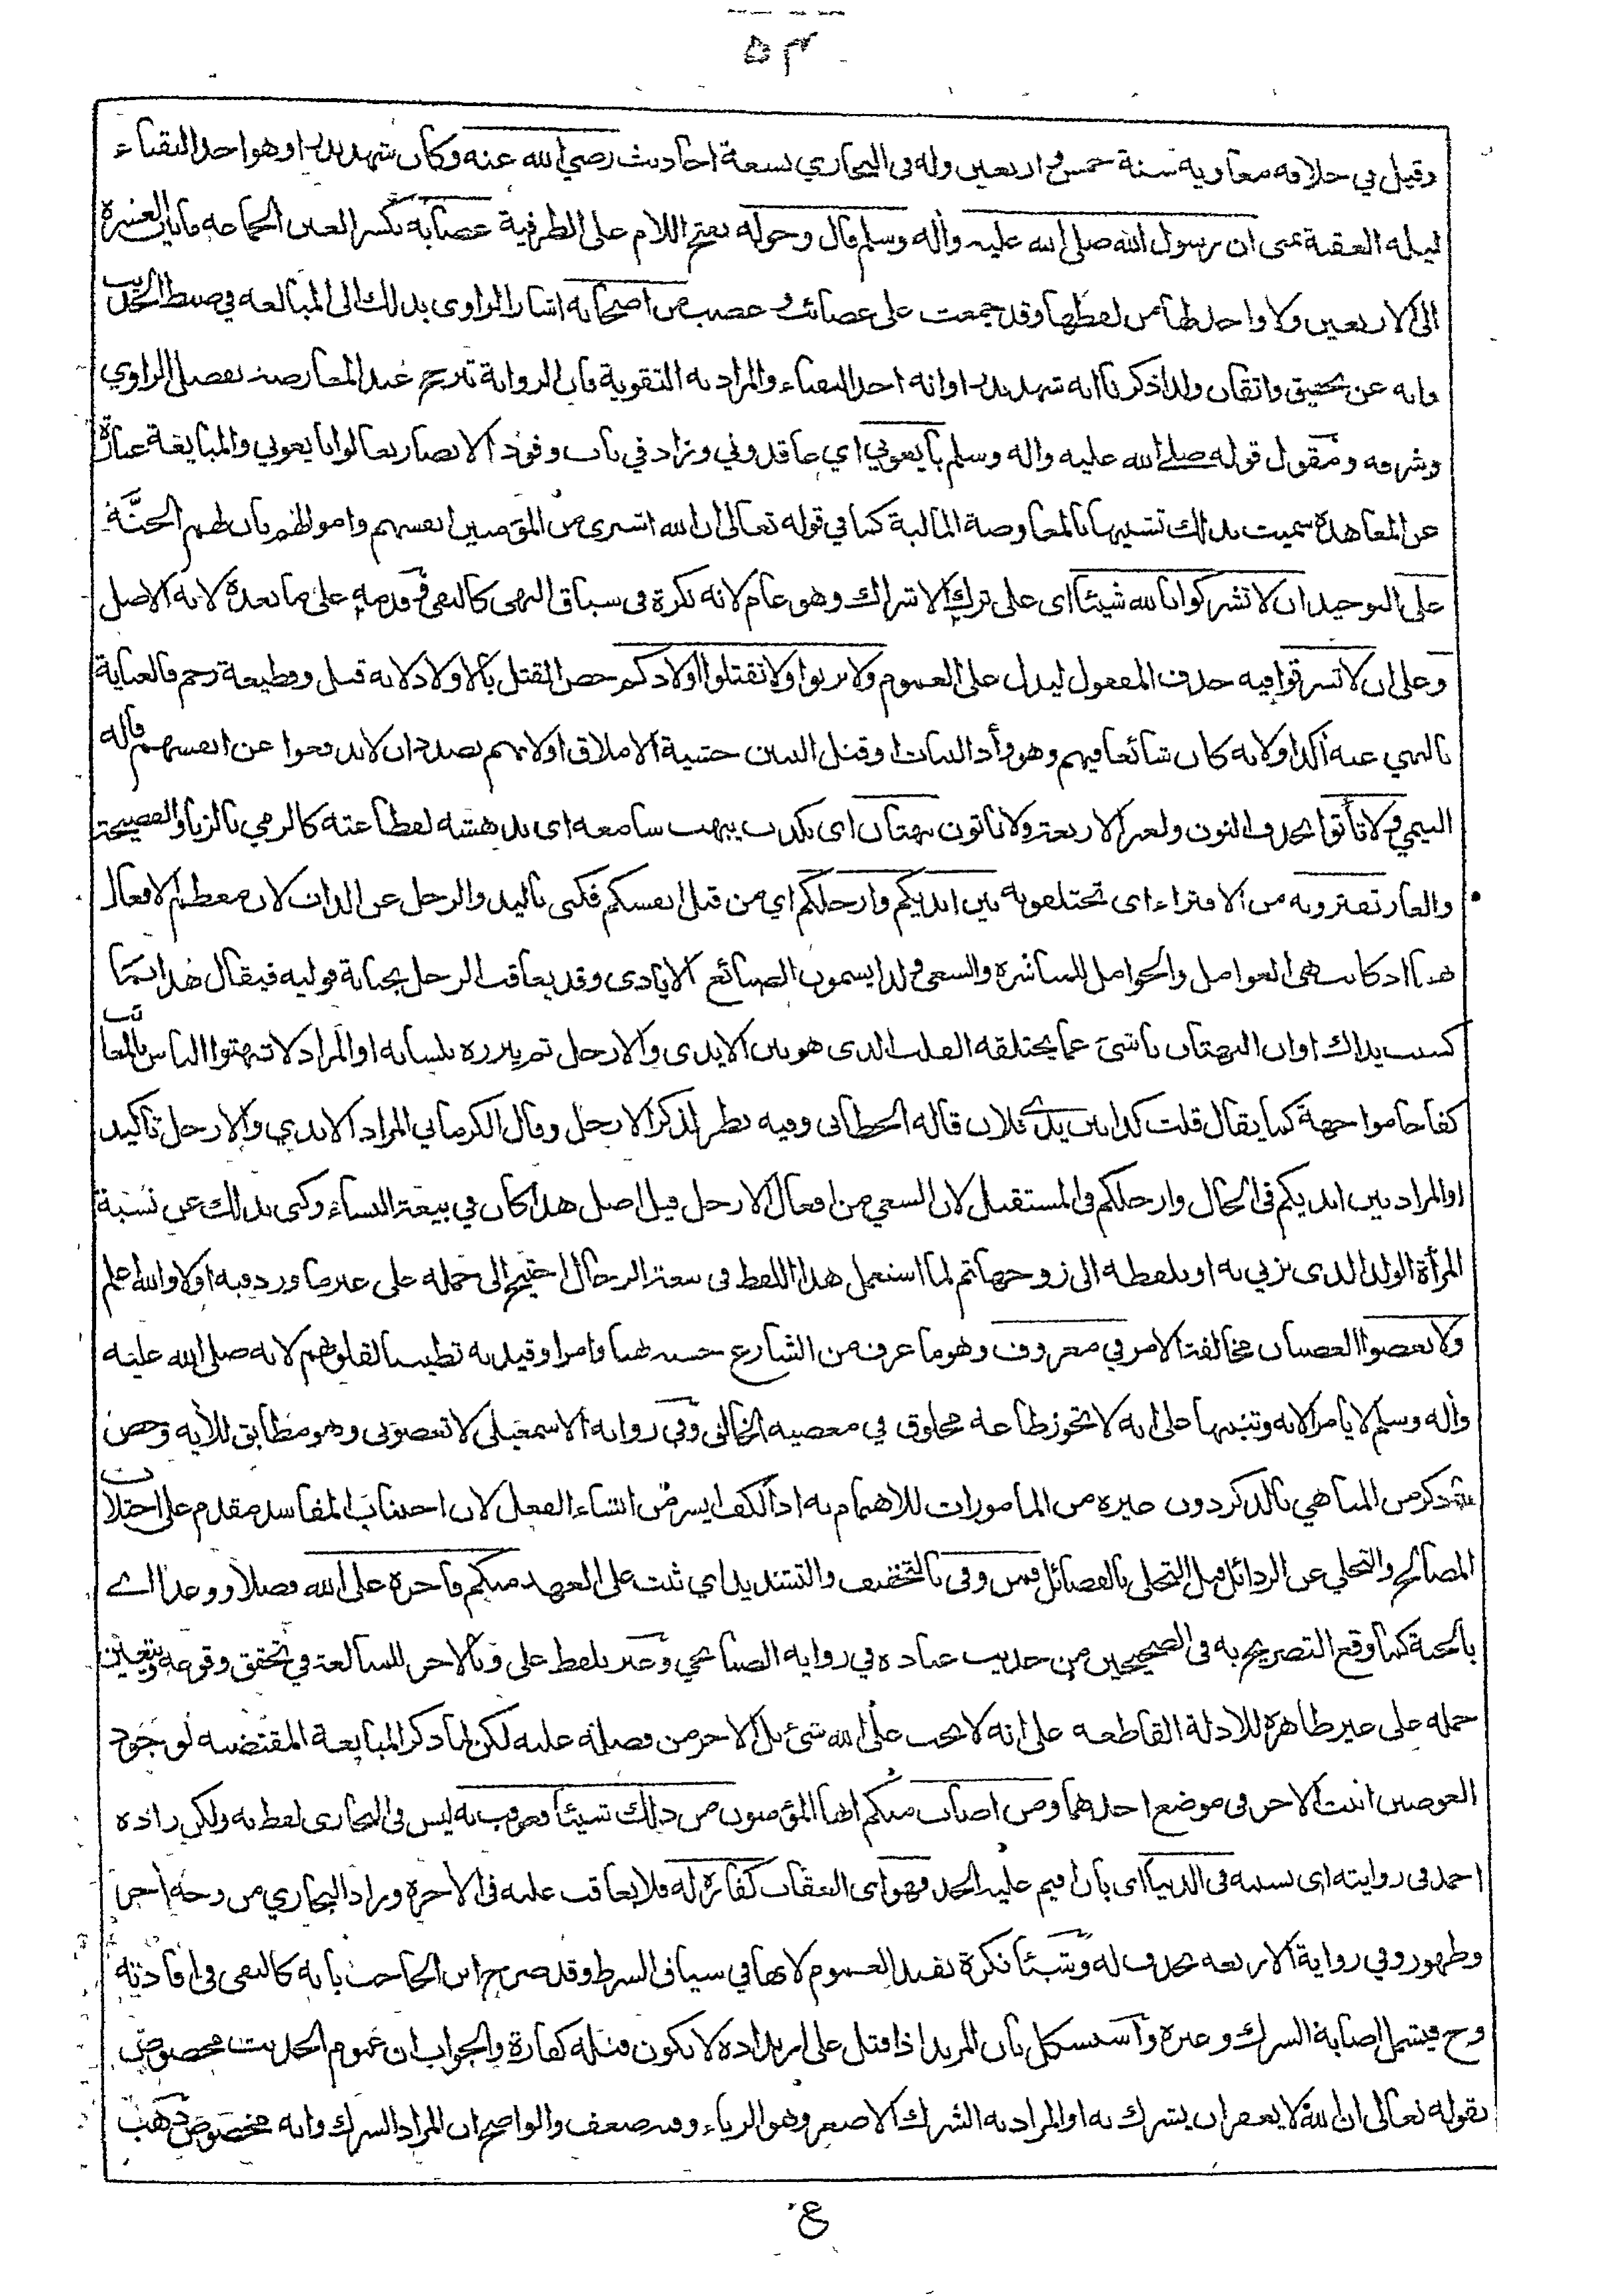 ٥٣
وقيل في خلافة معاوية سنة خمس واربعين وله في البخاري تسعة احاديث رضي الله عنه وكان شهد بدرا وهو احد النقباء
ليلة العقبة بمنى ان رسول الله صلى الله عليه وآله وسلم قال وحوله بفتح اللام على الظرفية عصابة بكسر العين الجماعه ما بين العشرة
الى الاربعين ولا واحد لها من لفظها وقد جمعت على عصائب وعصب من اصحابه اشار الراوي بذلك الى المبالغه في ضبط الحديث
وانه عن تحقيق واتقان ولذا ذكر ناانه شهد بدرا وانه احد النقباء والمراد به التقوية فان الرواية ترجح عند المعارضة بفضل الراوي
وشرفه ومقول قوله صلى الله عليه واله وسلم بايعوني اي عاقدوني وزاد في باب وفود الانصار تعالوا بايعوني والمبايعة عبارة
عن المعاهدة سميت بذلك تشبيها بالمعاوضة المالية كما في قوله تعالى ان الله اشترى من المؤمنين انفسهم واموالهم بان لهم الجنَّة
على التوحيد ان لا تشركوا بالله شيئا اى على ترك الاشراك وهو عام لانه نكرة في سياق النهى كالنفي وقدمه على ما بعده لانه الاصل
وعلى ان لا تسرقوا فيه حذف المفعول ليدل على العموم ولا تزنوا ولا تقتلوا اولادكم خص القتل بالاولاد لانه قتل وقطيعة رحم فالعناية
بالنهي عنه آكد اولانه كان شائعا فيهم وهو وأد البنات او قتل البنين خشية الاملاق اولانهم بصدد ان لا يدفعوا عن انفسهم قاله
التيمي ولا تأتوا بحذف النون ولغير الاربعة ولا تاتون ببهتان اى بكذب يبهت سامعه اى يدهشه لفظاعته كالرمي بالزنا والفضيحة
والعار تفترونه من الافتراء اى تختلقونه بين ايديكم وارجلكم اي من قبل انفسكم فكنى باليد والرجل عن الذات لان معظم الافعال
بهما اذ كانت هى العوامل والحوامل للمباشرة والسعى ولذا يسمون الصنائع الايادى وقد يعاقب الرجل بجناية قوليه فيقال هذا بما
كسبت يداك اوان البهتان ناشئ عما يختلقه القلب الذى هو بين الايدى والارجل ثم يبرزه بلسانه او المراد لا تبهتوا الناس بالمعائب
كفاحا مواجهة كما يقال قلت كذا بين يدى فلان قاله الخطابى وفيه نظر لذكر الارجل وقال الكرماني المراد الايدي والارجل تاكيد
او المراد بين ايديكم فى الحال وارجلكم فى المستقبل لان السعي من افعال الارجل قيل اصل هذا كان في بيعة النساء وكنى بذلك عن نسبة
المرأة الولد الذى تزنى به او تلتقطه الى زوجها ثم لما استعمل هذا اللفظ فى بيعة الرجال احتيج الى حمله على غير ما ورد فيه اولا والله اعلم
ولا تعصوا العصيان مخالفة الامر في معروف وهو ما عرف من الشارع حسنه نهيا وامرا وقيد به تطييبا لقلوبهم لانه صلى الله عليه
وأله وسلم لا يامر الا به وتنبيها على انه لا تجوز طاعة مخلوق في معصيه الخالق وفي رواية الاسمعيلى لا تعصونى وهو مطابق للآيه وخص
ما ذكر من المناهي بالذكر دون غيره من المامورات للاهتمام به اذ الكف ايسر من انشاء الفعل لان اجتناب المفاسد مقدم على اجتلاب
المصالح والتخلي عن الرذائل قبل التحلى بالفضائل فمن وفى بالتخفيف والتشديد اي ثبت على العهد منكم فاجره على الله فضلا ووعدا اے
بالجنة كما وقع التصريح به فى الصحيحين من حديث عباده في رواية الصنابحي وعبر بلفظ على وبالاجر للمبالغة في تحقق وقوعه ويتعين
حمله على غير ظاهرة للادلة القاطعه على انه لا يجب على الله شئ بل الاجر من فضله عليه لكن لما ذكر المبايعة المقتضيه لوجود
العوضين اثبت الاجر فى موضع احدهما ومن اصاب منكم ايها المؤمنون من ذلك شيئا فعوقب به ليس فى البخارى لفظ به ولكن زاده
احمد فى روايته اى بسببه فى الدنيا اى بان اقيم عليه الحد فهو اى العقاب كفارة له فلا يعاقب عليه فى الآخرة وزاد البخاري من وجه آخر
وطهور وفي رواية الاربعه بحذف له وشيئا نكرة تفيد العموم لانها في سياق الشرط وقد صرح ابن الحاجب بانه كالنفى فى افادته
وح فيشمل اصابة الشرك وغيره واستشكل بان المرتد اذا قتل على ارتداده لا يكون قتله كفارة والجواب ان عموم الحديث مخصوص
بقوله تعالى ان الله لا يغفر ان يشرك به او المراد به الشرك الاصغر وهو الرياء وفيه ضعف والواضح ان المراد الشرك وانه مخصوص ذهب
ع